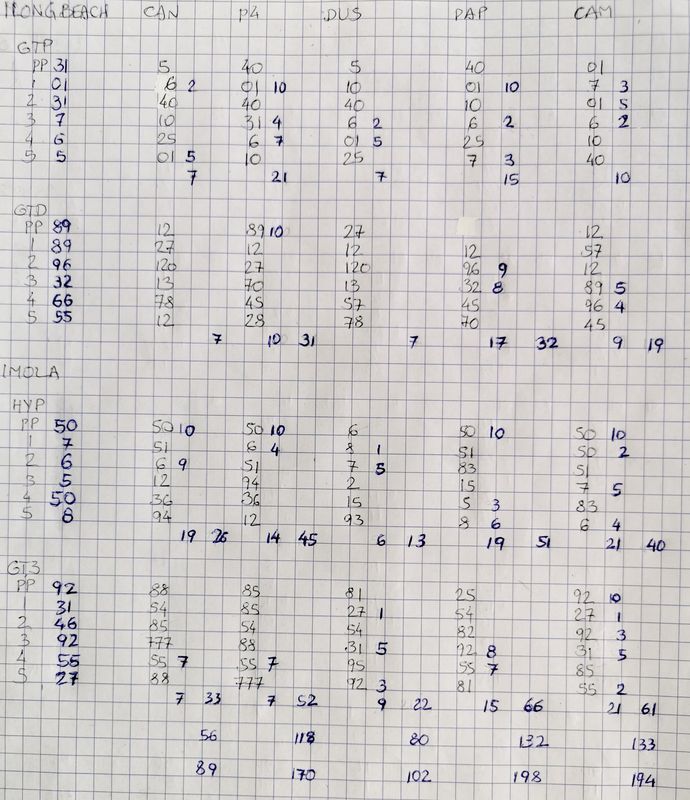 LONG BEACH CAN P4 DUS PAP CAM
GTP
PP 31 5 40 5 40 01
1 01 6 2 01 10 10 01 10 7 3
2 31 40 40 40 10 01 5
3 7 10 31 4 6 2 6 2 6 2
4 6 25 6 7 01 5 25 10
5 5 01 5 10 25 7 3 40
7 21 7 15 10
GTD
PP 89 12 89 10 27 12
1 89 27 12 12 12 57
2 96 120 27 120 96 9 12
3 32 13 70 13 32 8 89 5
4 66 78 45 57 45 96 4
5 55 12 28 78 70 45
7 10 31 7 17 32 9 19
IMOLA
HYP
PP 50 50 10 50 10 6 50 10 50 10
1 7 51 6 4 8 1 51 50 2
2 6 6 9 51 7 5 83 51
3 5 12 94 2 15 7 5
4 50 36 36 15 5 3 83
5 8 94 12 93 8 6 6 4
19 26 14 45 6 13 19 51 21 40
GT3
PP 92 88 85 81 25 92 10
1 31 54 85 27 1 54 27 1
2 46 85 54 54 82 92 3
3 92 777 88 31 5 92 8 31 5
4 55 55 7 55 7 95 55 7 85
5 27 88 777 92 3 81 55 2
7 33 7 52 9 22 15 66 21 61
56 118 80 132 133
89 170 102 198 194